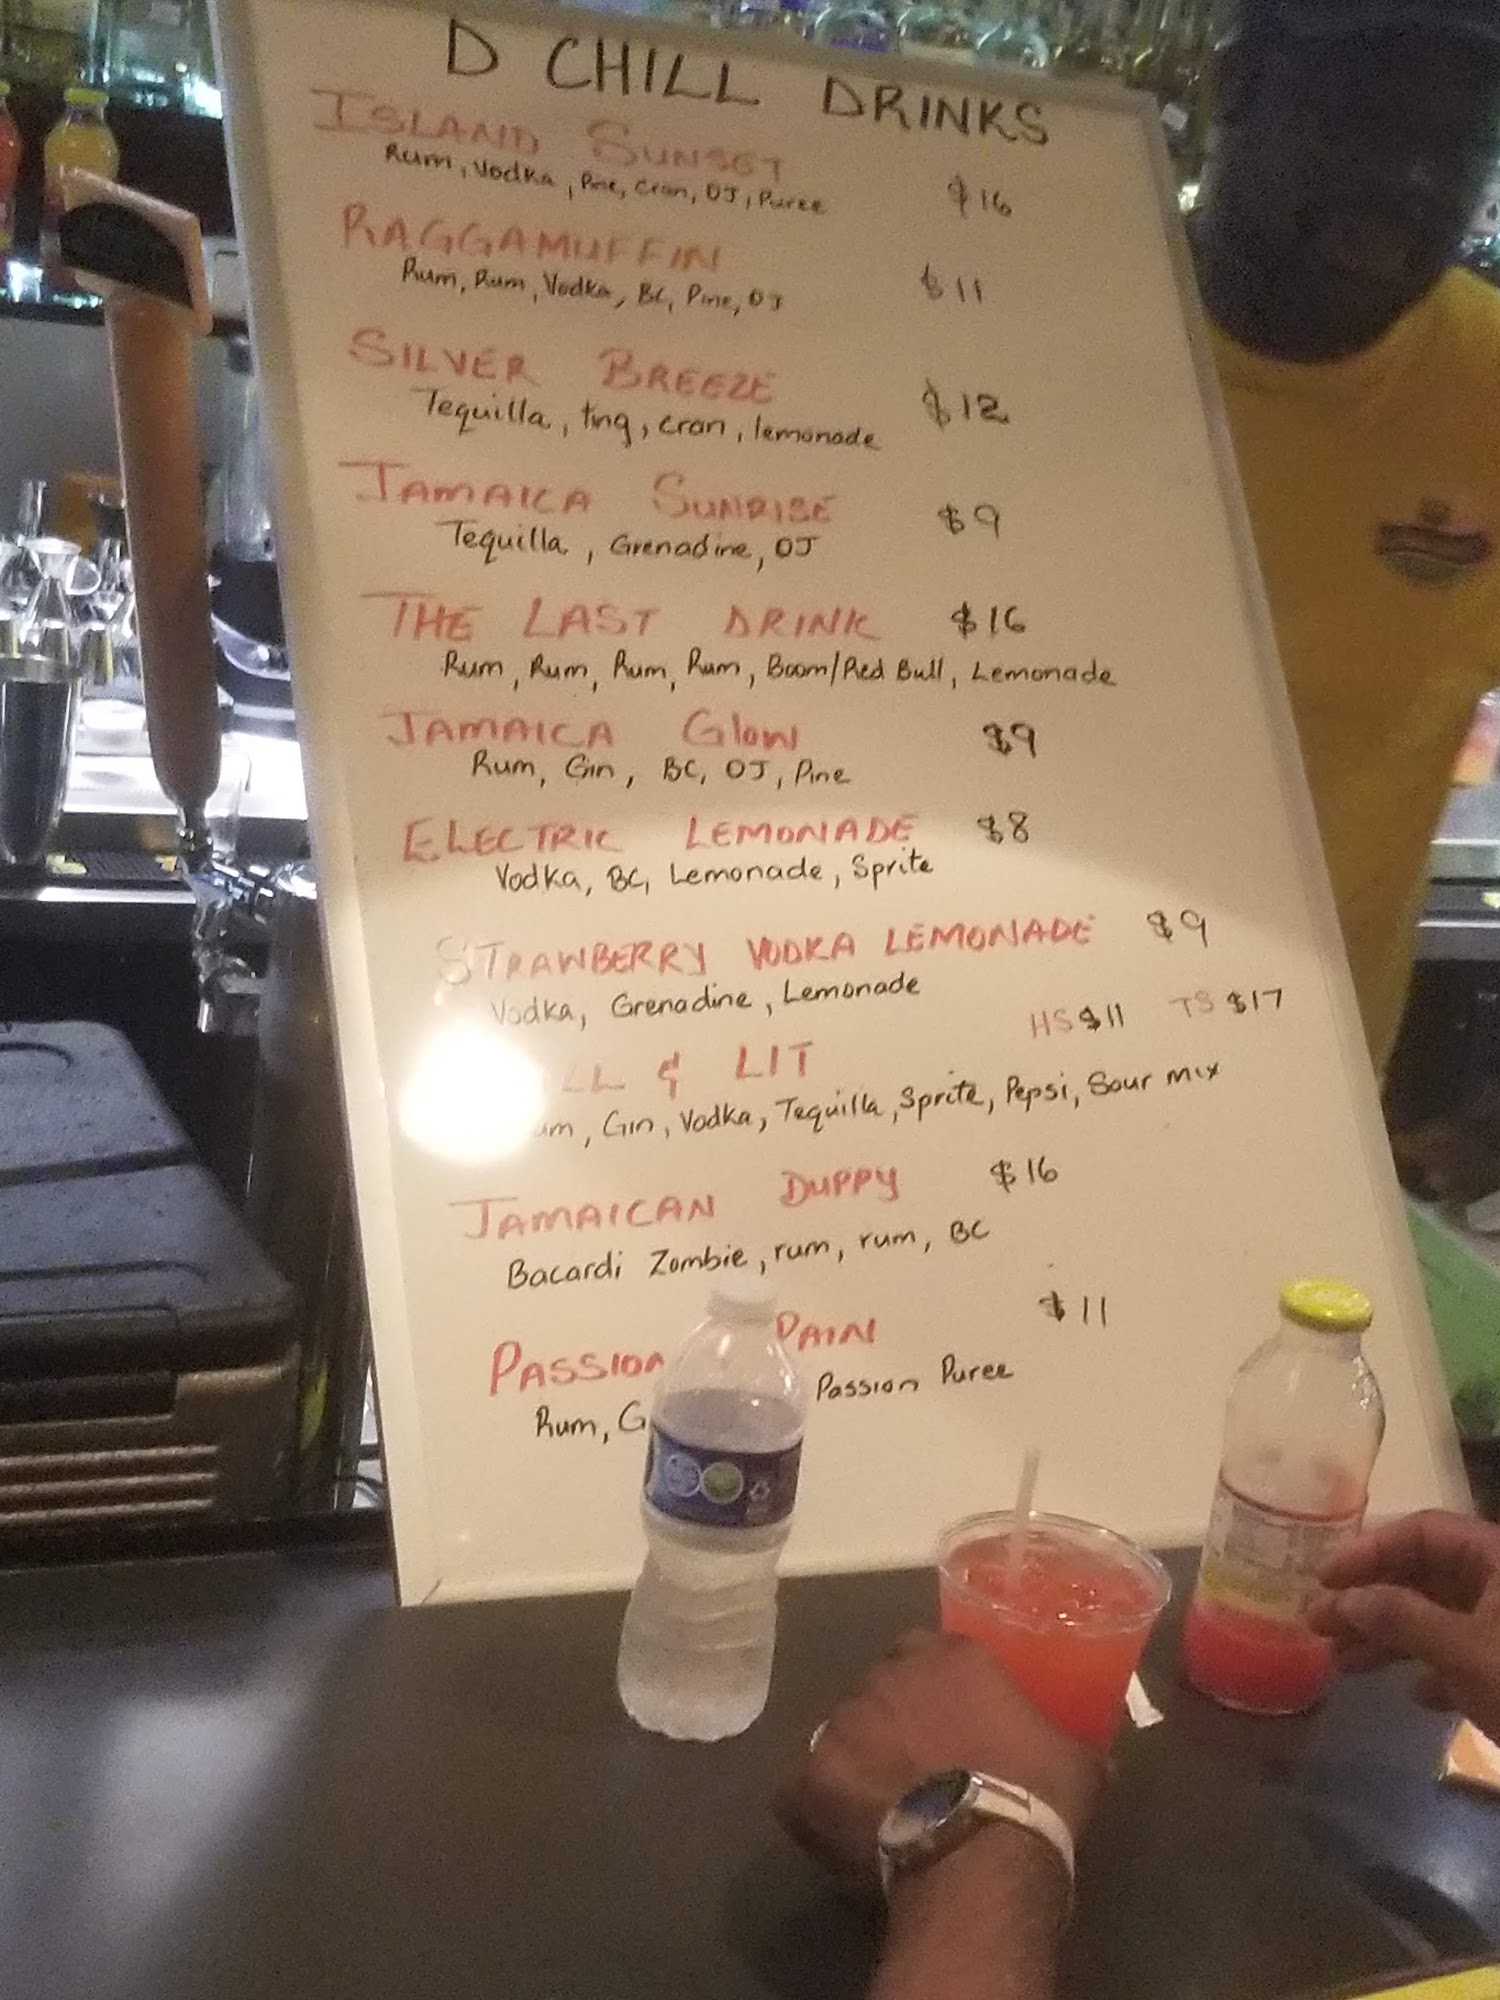 D CHILL DRINKS
ISLAND SUNSET
Rum, Vodka, Pine, Cran, OJ, Puree $16
RAGGAMUFFIN
Rum, Rum, Vodka, BC, Pine, OJ $11
SILVER BREEZE $12
Tequilla, ting, cran, lemonade
JAMAICA SUNRISE $9
Tequilla, Grenadine, OJ
THE LAST DRINK $16
Rum, Rum, Rum, Rum, Boom/Red Bull, Lemonade
JAMAICA Glow $9
Rum, Gin, BC, OJ, Pine
ELECTRIC LEMONADE $8
Vodka, BC, Lemonade, Sprite
STRAWBERRY VODKA LEMONADE $9
Vodka, Grenadine, Lemonade
LL & LIT HS $11 TS $17
um, Gin, Vodka, Tequilla, Sprite, Pepsi, Sour mix
JAMAICAN DUPPY $16
Bacardi Zombie, rum, rum, BC
PASSION PAIN $11
Rum, G Passion Puree